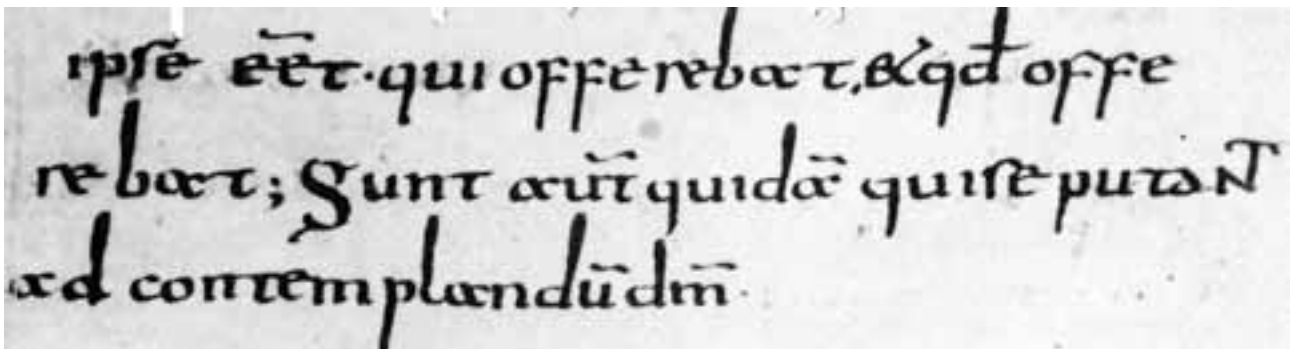 ipse eēt · qui offerebat, & qđ offe
rebat; Sunt aūt quidā qui se putant
ad contemplandū dm̄ ·